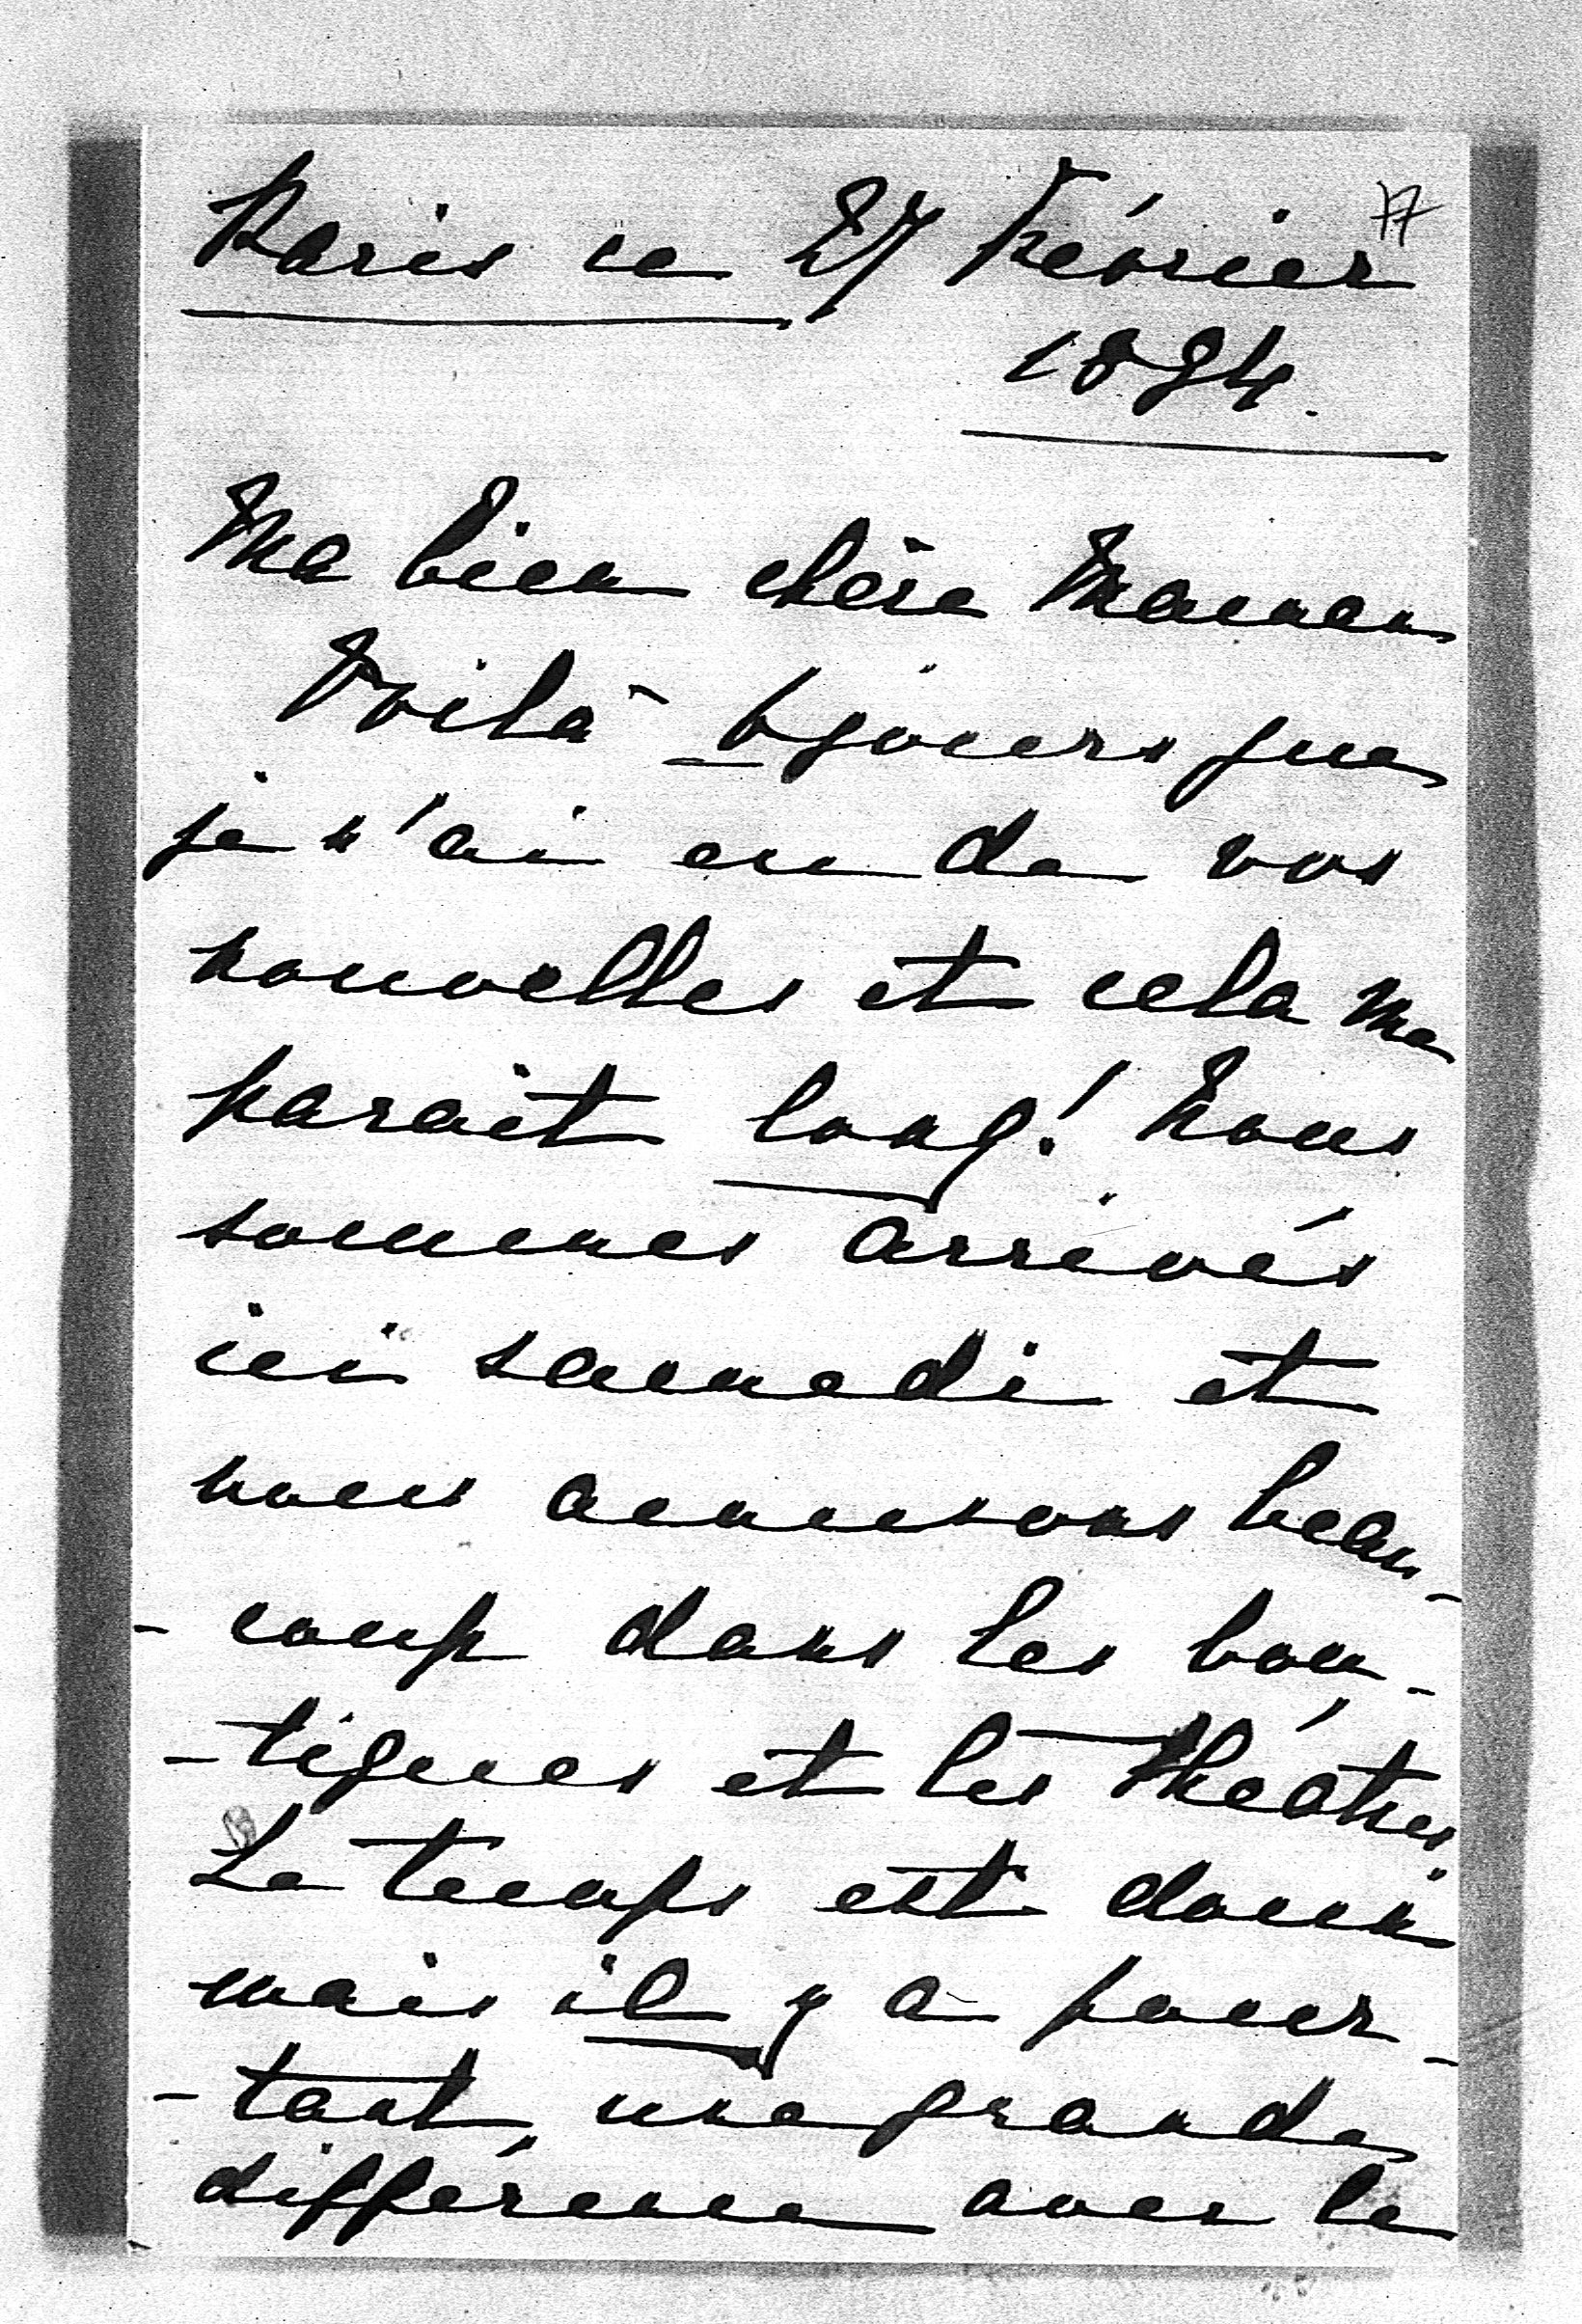 77
Paris ce 27 Février
1894.
Ma bien chère Maman
Voilà 6 jours que
je n'ai eu de vos
nouvelles et cela me
parait long! Nous
sommes arrivés
ici samedi et
nous amusons beau-
-coup dans les bou-
-tiques et les Théatres.
Le temps est doux
mais il y a pour-
-tant une grande
différence avec le